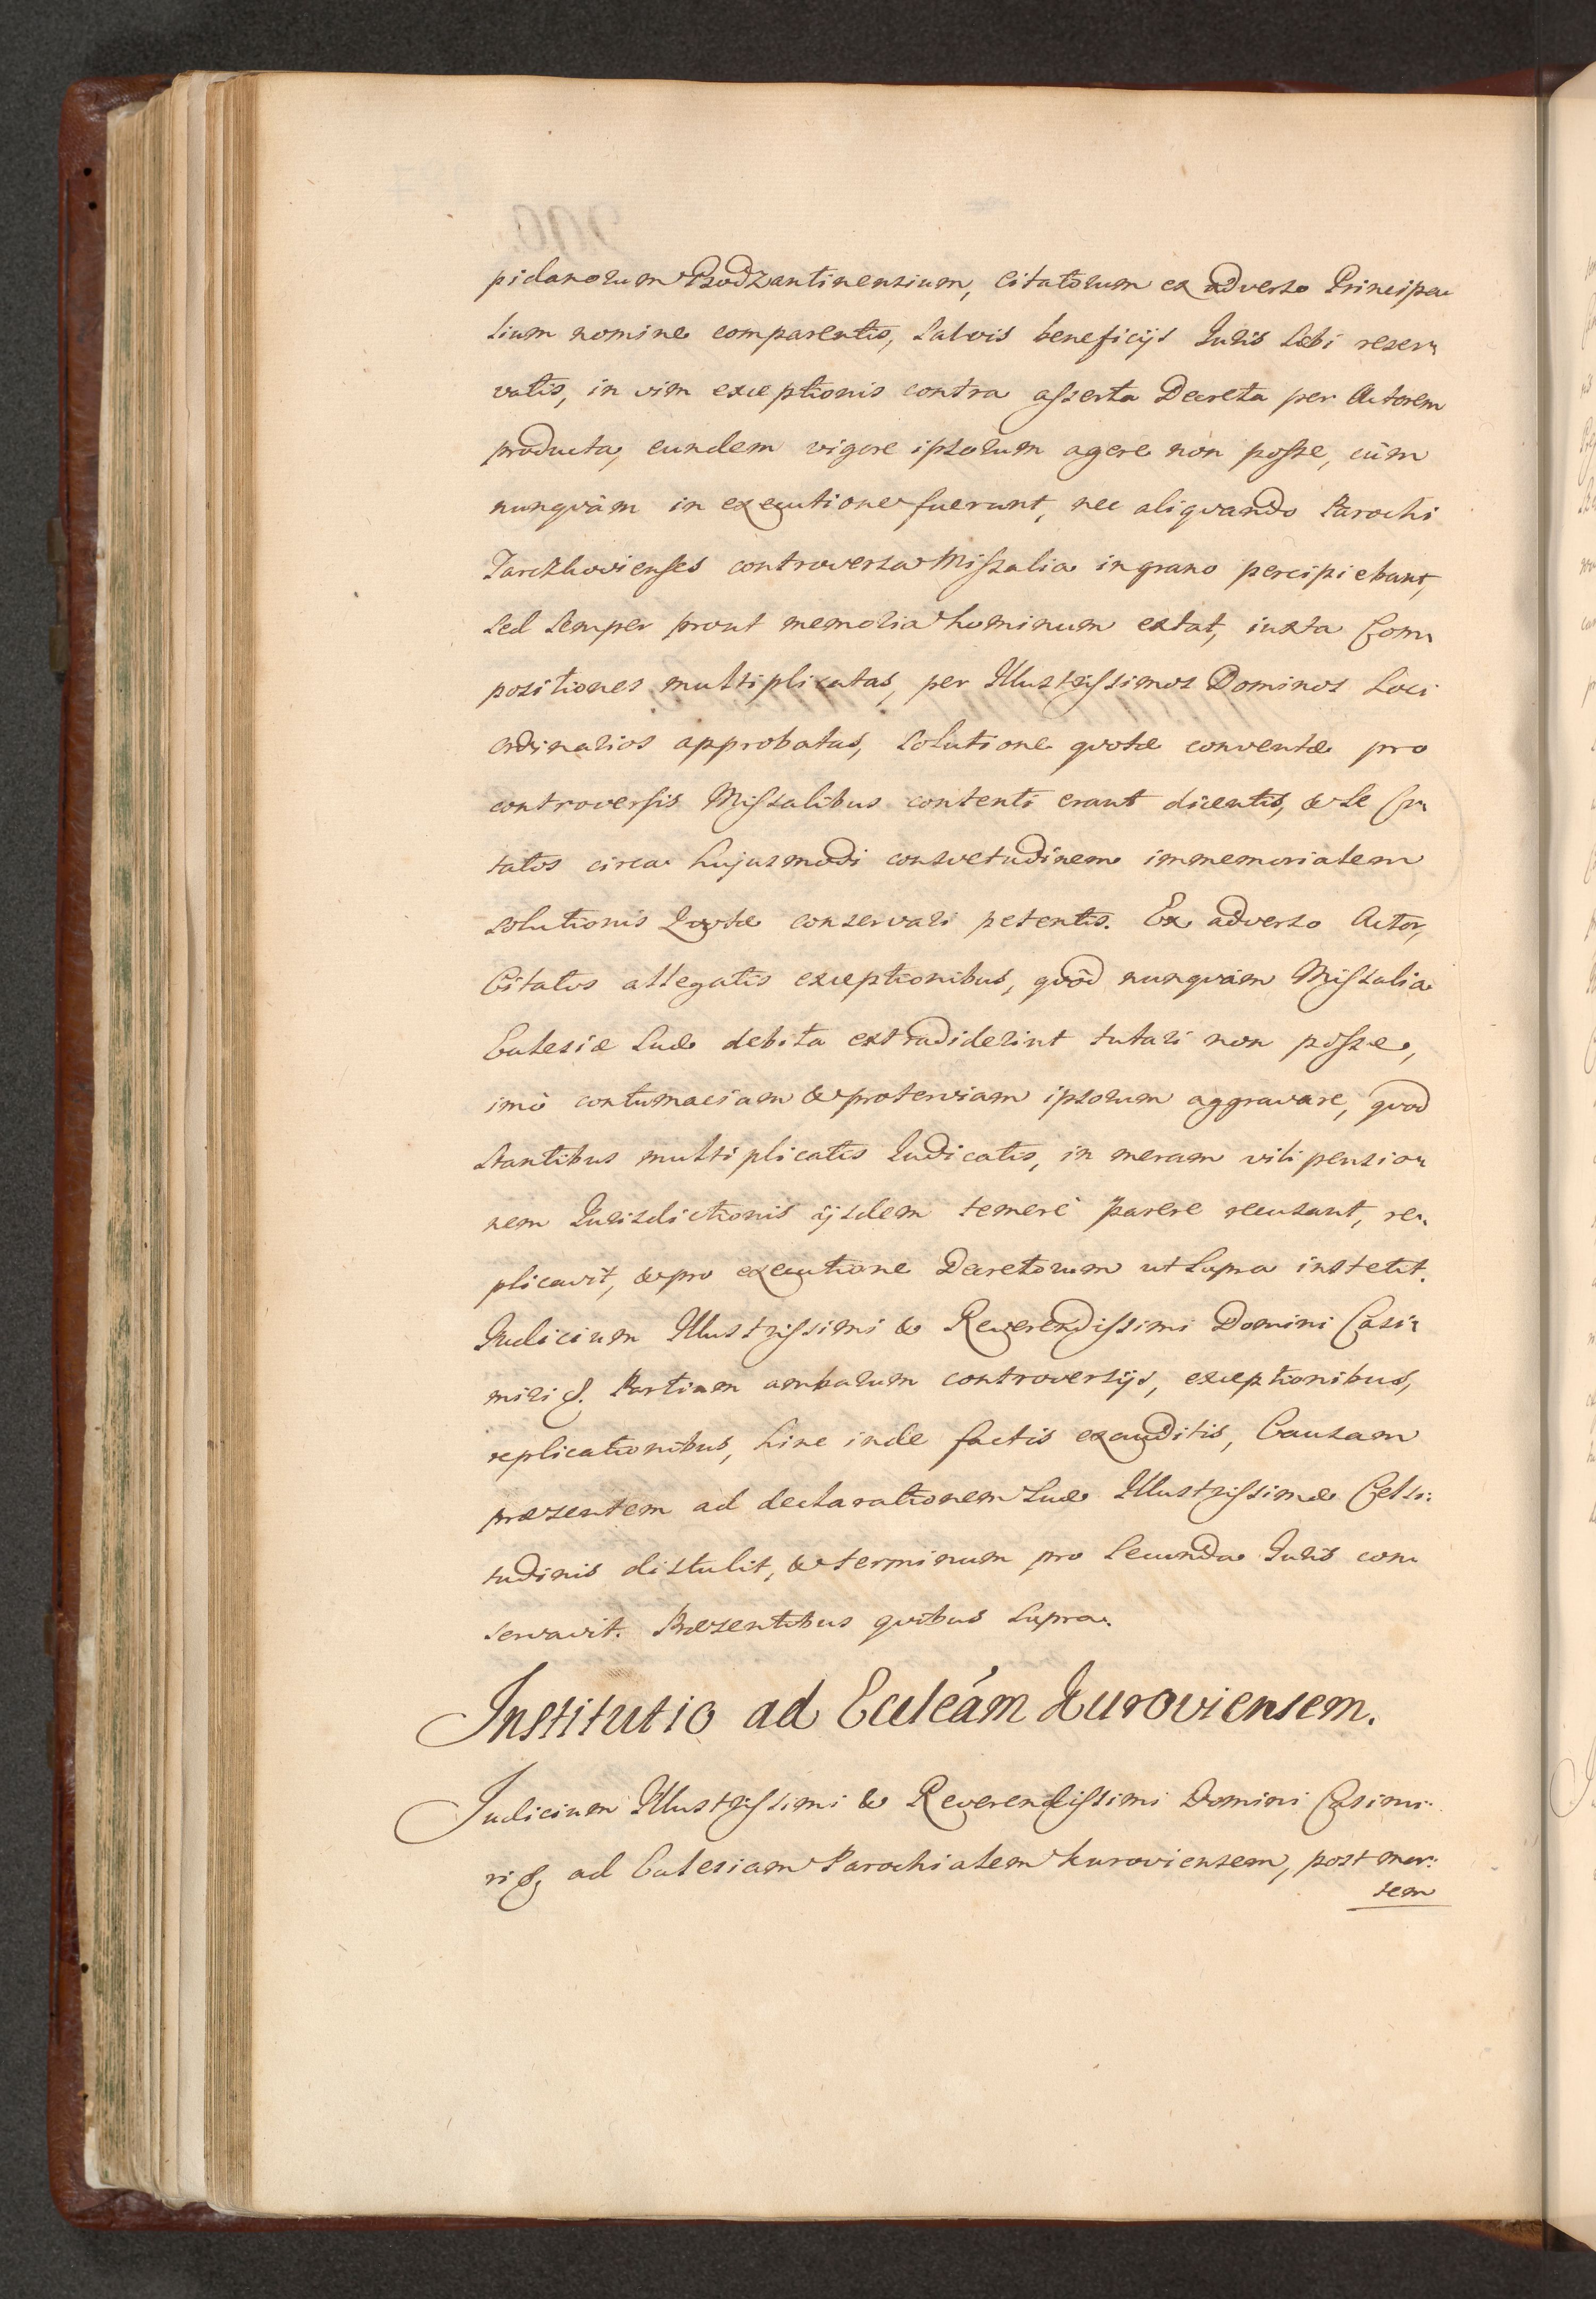 pidanorum Brodzantinensium, Citatorum ex adverso Principa
lium nomine comparentis, salvis beneficijs Iuris sibi reser
vatis, in vim exceptionis contra asserta Decreta per Actorem
producta, eundem vigore ipsorum agere non posse, cùm
nunqvàm in executione fuerunt, nec aliqvando Parochi
Tarczkovienses controversa Missalia in grano percipiebant,
sed semper prout memoria hominum extat, iuxta Com
positiones multiplicatas, per Illustrissimos Dominos Loci
ordinarios approbatas, solutione qvotæ conventæ pro
controversis Missalibus contenti erant dicentis, & se Ci
tatos circa hujusmodi consvetudinem immemorialem
solutionis Qvotæ conservari petentis. Ex adverso Actor,
Citatos allegatis exceptionibus, qvòd nunqvàm Missalia
Eccلesiæ suæ debita extradiderint tutari non posse,
imò contumaciam & proterviam ipsorum aggravare, qvod
stantibus multiplicatis Iudicatis, in meram vilipensio
nem Iurisdictionis ijsdem temerè parere recusant, re
plicavit, & pro executione Decretorum ut supra institit.
Iudicium Illustrissimi & Reverendissimi Domini Casi
miri &. Partium ambarum controversijs, exceptionibus,
replicationibus, hinc inde factis exauditis, Causam
præsentem ad declarationem suæ Illustrissimæ Celsi:
tudinis distulit, & terminum pro secunda Iuris con
servavit. Præsentibus qvibus supra.
Institutio ad Eccleám Kuroviensem.
Judicium Illustrissimi & Reverendissimi Domini Casimi:
ri &, ad Ecclesiam Parochialem Kuroviensem, post mor:
tem